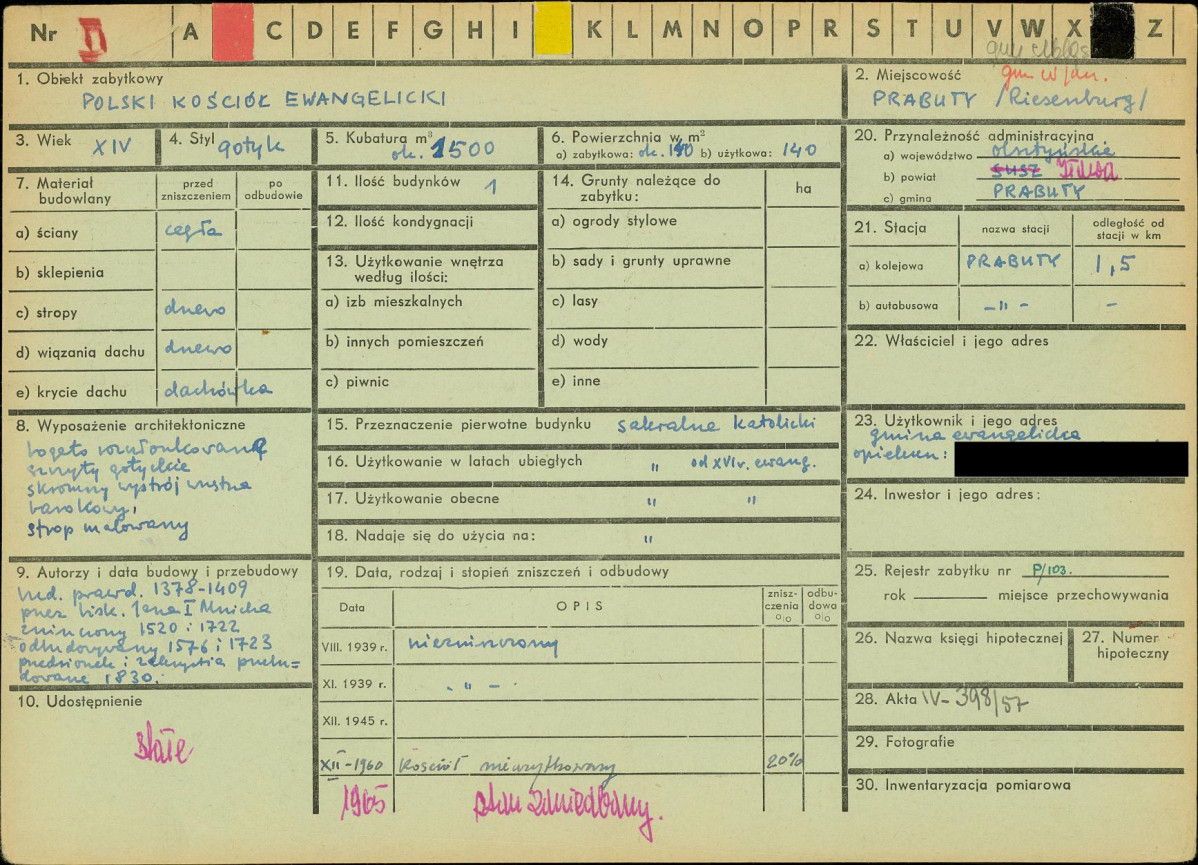 Nr II A C D E F G H I K L M N O P R S T U V W X Z
1. Obiekt zabytkowy
POLSKI KOŚCIÓŁ EWANGELICKI
2. Miejscowość
PRABUTY /Riesenburg/
3. Wiek XIV
4. Styl gotyk
5. Kubatura m³
ok. 1500
6. Powierzchnia w m²
a) zabytkowa: ok. 190 b) użytkowa: 140
20. Przynależność administracyjna
a) województwo olsztyńskie
b) powiat SUSZ Iława
c) gmina PRABUTY
7. Materiał budowlany
przed zniszczeniem
po odbudowie
a) ściany cegła
b) sklepienia
c) stropy drewo
d) wiązania dachu drewo
e) krycie dachu dachówka
11. Ilość budynków 1
12. Ilość kondygnacji
13. Użytkowanie wnętrza
według ilości:
a) izb mieszkalnych
b) innych pomieszczeń
c) piwnic
14. Grunty należące do
zabytku:
ha
a) ogrody stylowe
b) sady i grunty uprawne
c) lasy
d) wody
e) inne
21. Stacja
nazwa stacji
odległość od
stacji w km
a) kolejowa PRABUTY 1,5
b) autobusowa -"- -
22. Właściciel i jego adres
8. Wyposażenie architektoniczne
bogato rozczłonkowane
szczyty gotyckie
skromny wystrój wnętrza
barokowy,
strop malowany
15. Przeznaczenie pierwotne budynku sakralne katolicki
16. Użytkowanie w latach ubiegłych " od XVI w. ewang.
17. Użytkowanie obecne " "
18. Nadaje się do użycia na: "
23. Użytkownik i jego adres
gmina ewangelicka
opiekun:
24. Inwestor i jego adres:
9. Autorzy i data budowy i przebudowy
bud. prawd. 1378-1409
przez bisk. Jana I Mnicha
zniszczony 1520 i 1722
odbudowany 1576 i 1723
przedsionek i zakrystia przebu=
dowane 1830.
19. Data, rodzaj i stopień zniszczeń i odbudowy
Data
OPIS
znisz-
czenia
%
odbu-
dowa
%
VIII. 1939 r. niezniszczony
XI. 1939 r. -"-
XII. 1945 r.
XII-1960 Kościół nieużytkowany 20%
1965 stan zaniedbany.
25. Rejestr zabytku nr P/103.
rok miejsce przechowywania
26. Nazwa księgi hipotecznej
27. Numer
hipoteczny
10. Udostępnienie
stałe
28. Akta IV-398/57
29. Fotografie
30. Inwentaryzacja pomiarowa